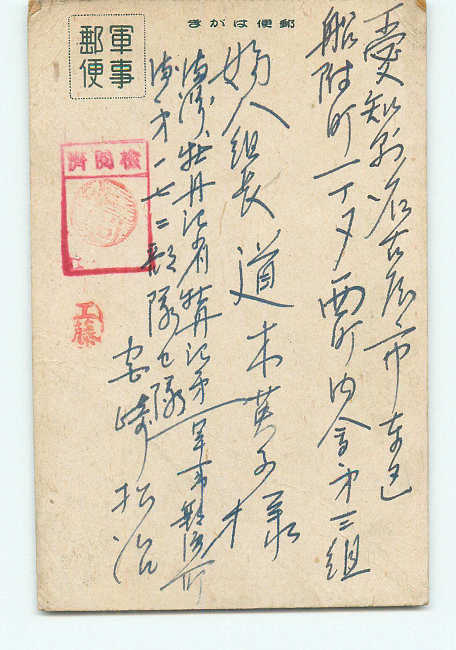 郵便はがき
軍事
郵便
検閲済
工藤
愛知県名古屋市東区
船附町一丁目西町内会第三組
婦人組長 道木英子様
満洲、牡丹江省牡丹江第一軍事郵便所
満第一七二部隊 隊
宮崎松治